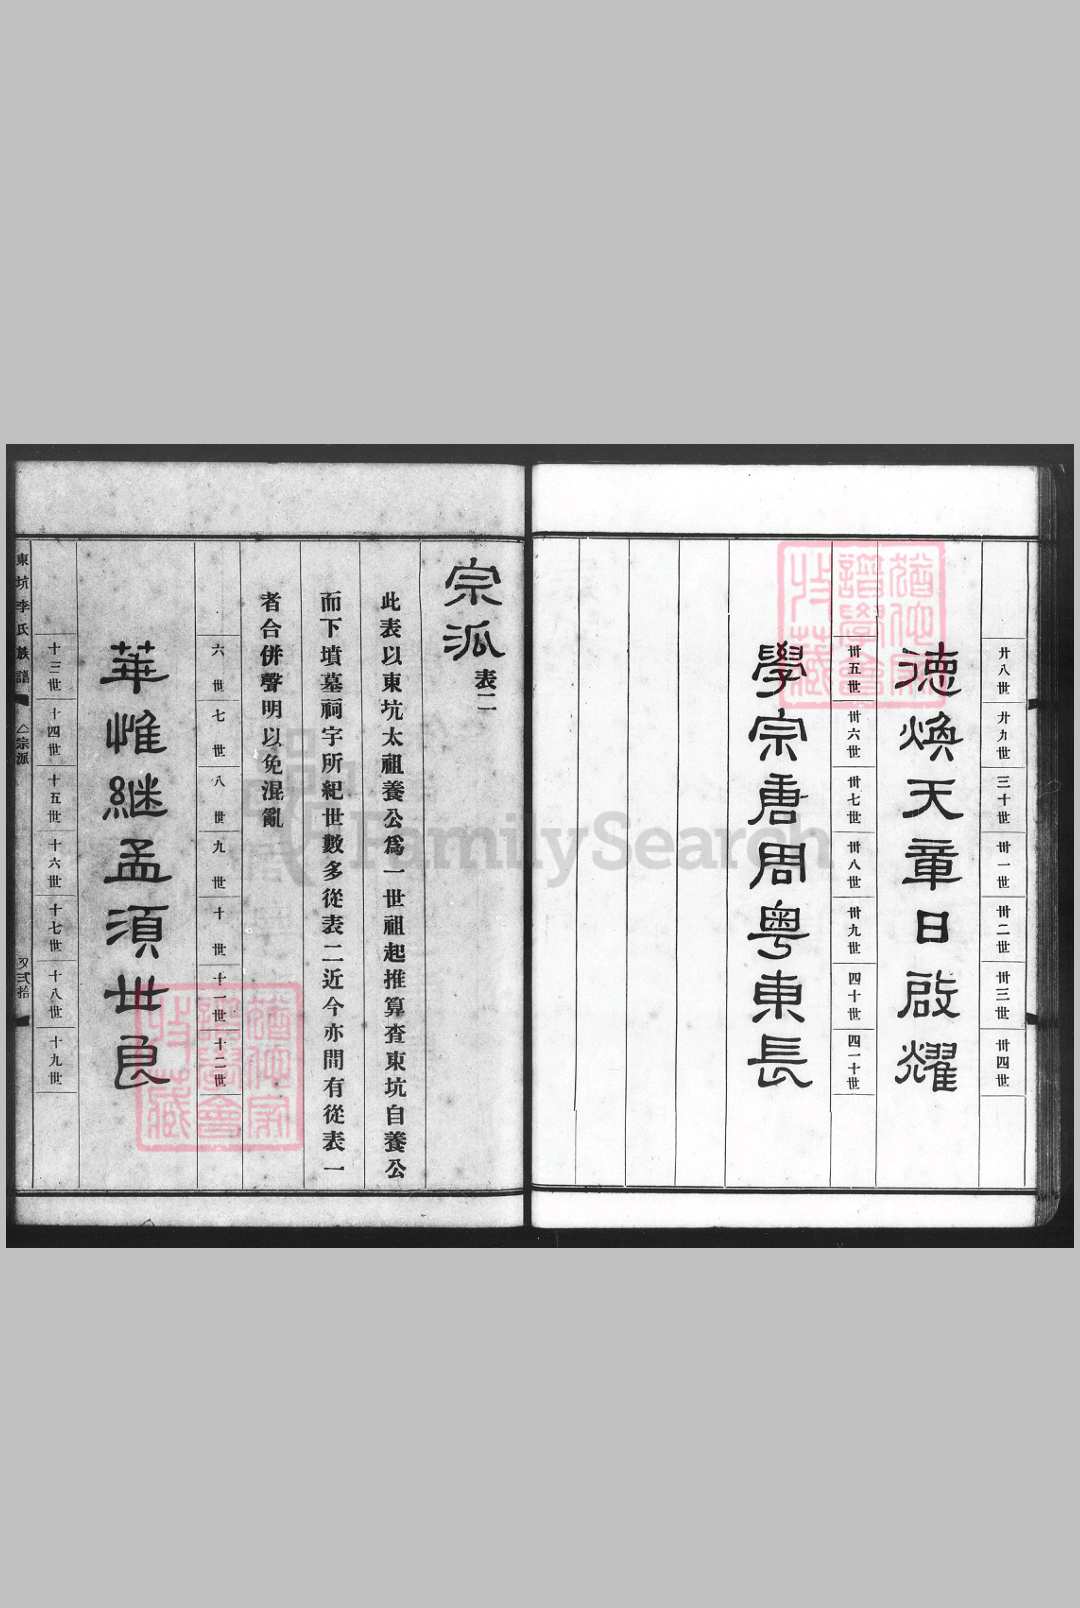 廿八世 廿九世 三十世 卅一世 卅二世 卅三世 卅四世
德煥天章日啟耀
卅五世 卅六世 卅七世 卅八世 卅九世 四十世 四一十世
學宗唐周粤東長
宗派 表二
此表以東坑太祖養公為一世祖起推算查東坑自養公
而下墳墓祠宇所紀世數多從表二近今亦間有從表一
者合併聲明以免混亂
六世 七世 八世 九世 十世 十一世 十二世
華惟継孟須世良
十三世 十四世 十五世 十六世 十七世 十八世 十九世
東坑李氏族譜 宗派 又弍拾
譜學會
收藏
譜學會
收藏
FamilySearch